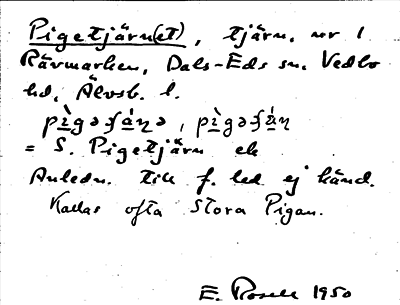 Pigetjärn(et), tjärn, nr 1
Rävmarken, Dals-Eds sn. Vedbo
hd, Älvsb. l.
pìgəʃä́ɳə, pìgəʃä́ɳ
= S. Pigetjärn ek
Anledn. till f. led ej känd.
Kallas ofta Stora Pigan.
E. Rosell 1950